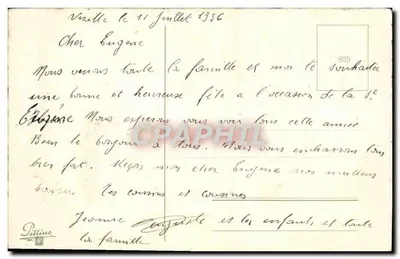 Vizille le 11 Juillet 1936
Cher Eugène
Nous venons toute la famille et moi te souhaiter
une bonne et heureuse fête a l'occasion de la St
Eugène Nous esperons vous voir tous cette année
Bien le bonjour a tous. Nous vous embrassons tous
bien fort. Reçois mon cher Eugène nos meilleurs
baisers Tes cousins et cousines
Jeanne Auguste et les enfants et toute
la famille
939
CPAPHIL